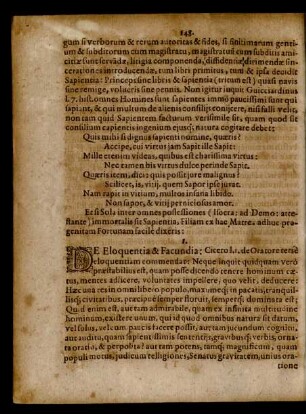 148.
gum si verborum & rerum autoritas & fides, si finitimarum gentium
& subditorum cum magistratu, magistratus cum subditis amicitiæ
sunt servãdæ, litigia componenda, dissidentia dirimendæ sincerationes
introducendæ, tum libri promtius, tum & ipsa decidit
Sapientia: Princeps sine libris & sapientia est quasi navis
sine remige, volucris sine pennis. Non igitur inquit Guicciardinus
L. 7. hist. omnes Homines sunt sapientes immò paucissimi sunt qui
sapiunt, & qui multum de alienis consilijs conijcere, nisi falli velit,
non tam quid Sapientem facturum verisimile sit, quam quod se
consilium capientis ingenium eiusq; natura cogitare debet:
Quis mihi sit dignus sapienti nomine, quæris?
Accipe, cui virtor jam Sapit ille Sapit:
Mille etenim videas, quibus est charissima virtus:
Nec tamen his virtus dulce perinde Sapit.
Quæris item, dici quis possit jure malignus?
Scilicet, is, vitij. quem Sapor ipse juvat.
Nam rapit in vitium, multos insana libido.
Non sapor, & vitij perniciosus amor.
Et si Sola inter omnes possessiones (Isocra: ad Demo: attestante)
immortalis sit Sapientia, Filiam ex hac Matre adhuc progenitam
Fortunam facile dixeris:
DE Eloquentia & Facundia: Cicero l. 1. de Oratore tertiè
eloquentiam commendat: Neque inquit quidquam verò
præstabilius est, quam posse dicendo tenere hominum cœtus,
mentes adlicere, voluntates impellere, quo velit, deducere:
Hæc una res in omni libero populo, maximeq; in pacatis, tranquillisq;
civitatibus, præcipuè semper floruit, semperq; dominata est:
Quid enim est, aut tam admirabile, quam ex infinita multitudine
hominum, existere unum, qui id quod omnibus natura sit datum,
vel solus, vel cum paucis facere possit, aut tam jucundum cognitu,
aut auditu, quam sapientissimis sententijs, gravibusq; verbis, ornata
oratio, & perpolita? aut tam potens, tamq; magnificum, quam
populi motus, judicum religiones, Senatus gravitatem, unius oratione